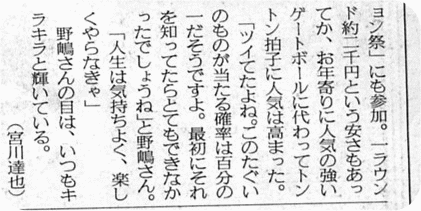 ョン祭」にも参加。一ラウン
ド約二千円という安さもあっ
てか、お年寄りに人気の強い
ゲートボールに代わってトン
トン拍子に人気は高まった。
「ツイてたよね。このたぐい
のものが当たる確率は百分の
一だそうですよ。最初にそれ
を知ってたらとてもできなか
ったでしょうね」と野嶋さん。
「人生は気持ちよく、楽し
くやらなきゃ」
野嶋さんの目は、いつもキ
ラキラと輝いている。
（宮川達也）